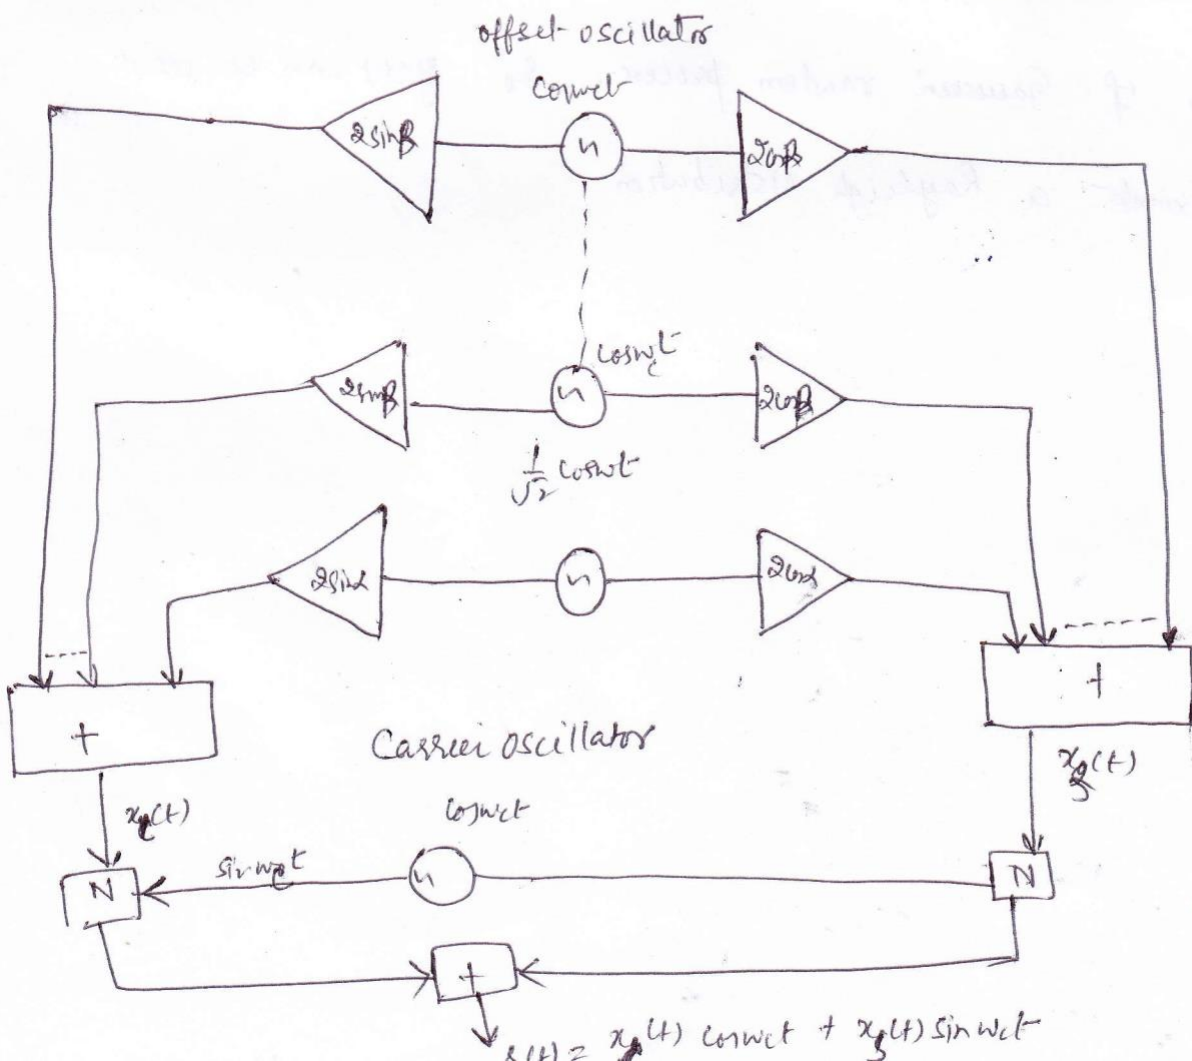 offset oscillator
cosωct
2sinβ
2cosβ
cosωct
2sinβ
2cosβ
1/√2 cosωt
2sinα
2cosα
+
+
Carrier oscillator
x(t)
x(t)
cosωct
sinωct
N
N
+
= x(t) cosωct + x(t) sinωct